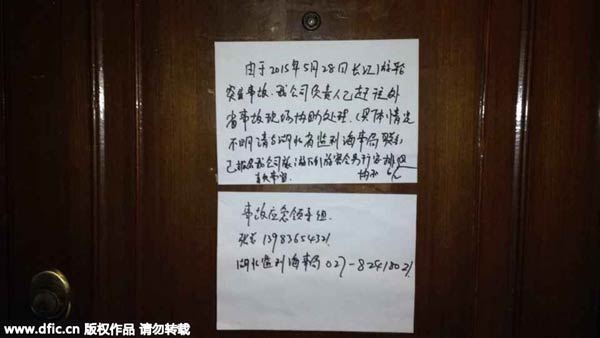 由于2015年5月28日长江游轮
突发事故,我公司负责人已赶往外
省事故现场协助处理,(具体情况
不明请与湖北省监利海事局联系)
已报名我公司旅游
协和
事故应急领导组
13983654321
湖北监利海事局 027-82418021
www.dfic.cn 版权作品 请勿转载